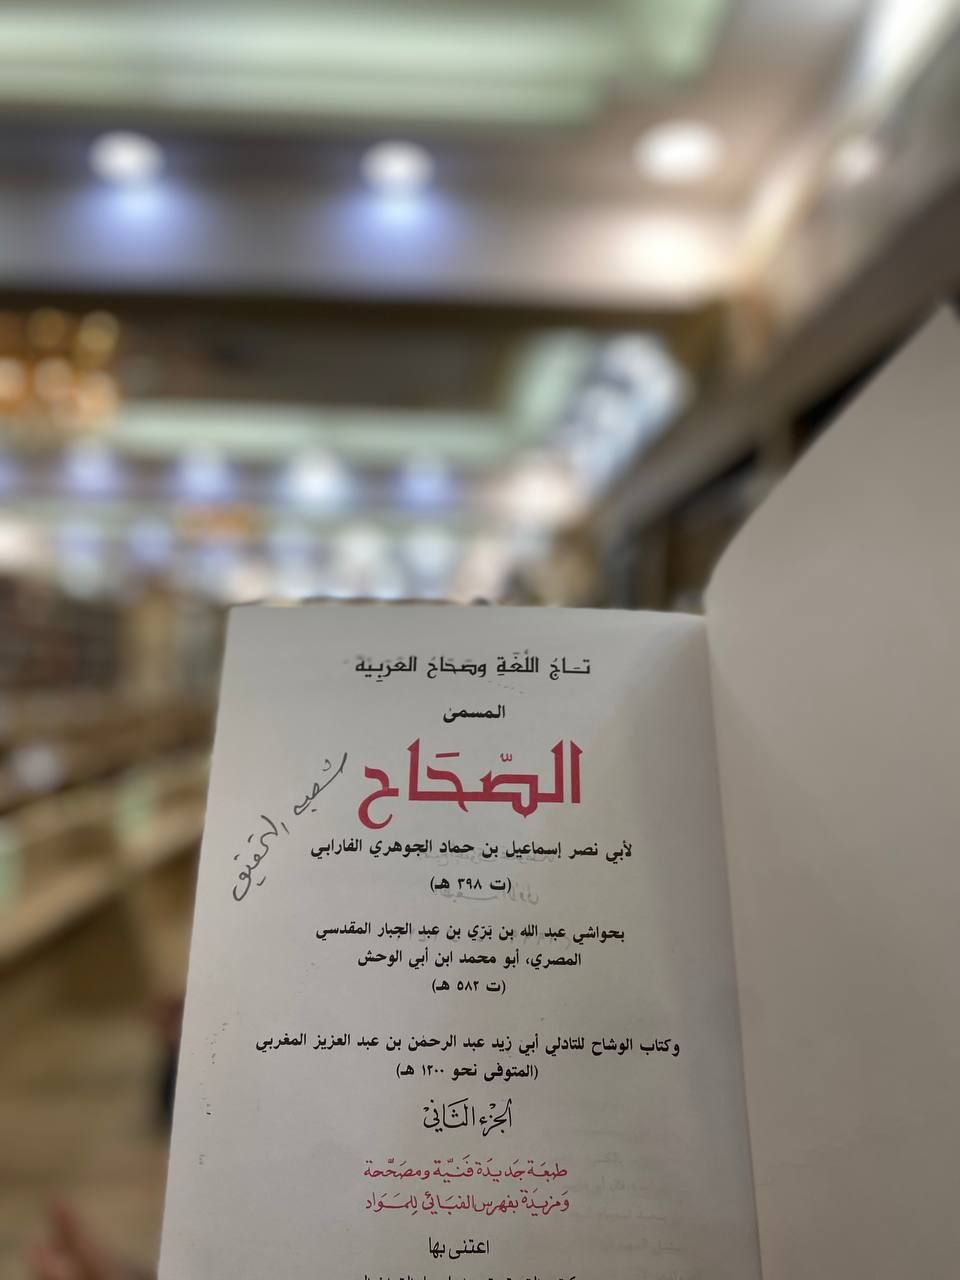 تاج اللُّغَةِ وصَحَاحُ العَرَبِيَّة
المسمى
الصّحَاح
لأبي نصر إسماعيل بن حماد الجوهري الفارابي
(ت ٣٩٨ هـ)
بحواشي عبد الله بن بَرّي بن عبد الجبار المقدسي
المصري، أبو محمد ابن أبي الوحش
(ت ٥٨٢ هـ)
وكتاب الوشاح للتادلي أبي زيد عبد الرحمٰن بن عبد العزيز المغربي
(المتوفى نحو ١٢٠٠ هـ)
الجزء الثاني
طبعَة جَديدَة فَنيّة ومصَحَّحة
وَمزيدَة بفهرس الفبَائي لِلمَوَاد
اعتنى بها